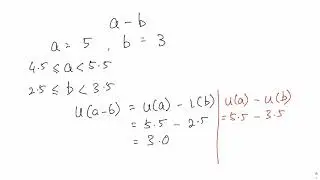 a-b
a = 5 , b = 3
4.5 ≤ a < 5.5
2.5 ≤ b < 3.5
u(a-b) = u(a) - L(b)
= 5.5 - 2.5
= 3.0
u(a) - u(b)
= 5.5 - 3.5